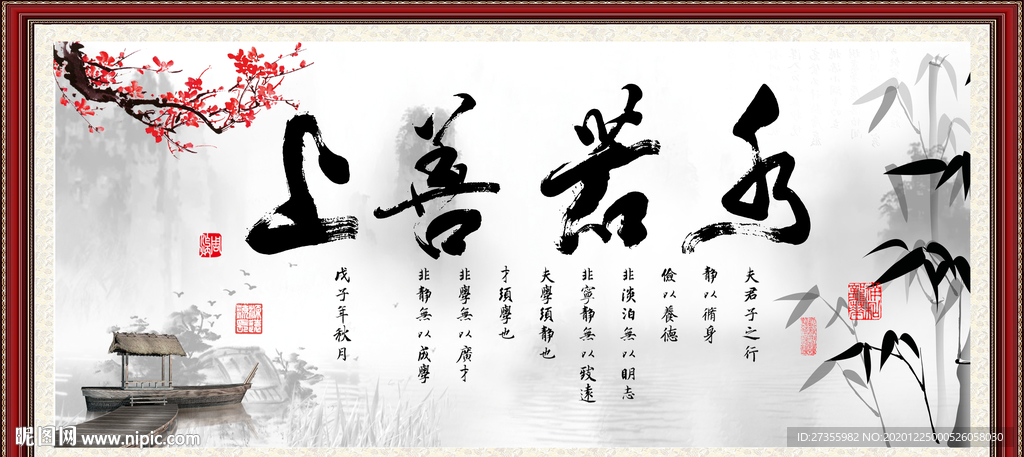 上善若水
夫君子之行
靜以脩身
儉以養德
非淡泊無以明志
非寧靜無以致遠
夫學須靜也
才須學也
非學無以廣才
非靜無以成學
戊子年秋月
昵图网 www.nipic.com
ID:27355982 NO:20201225000526058030